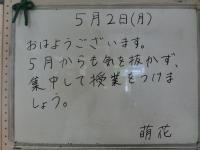 5月2日(月)
おはようございます。
5月からも気を抜かず、
集中して授業をうけま
しょう。
萌花